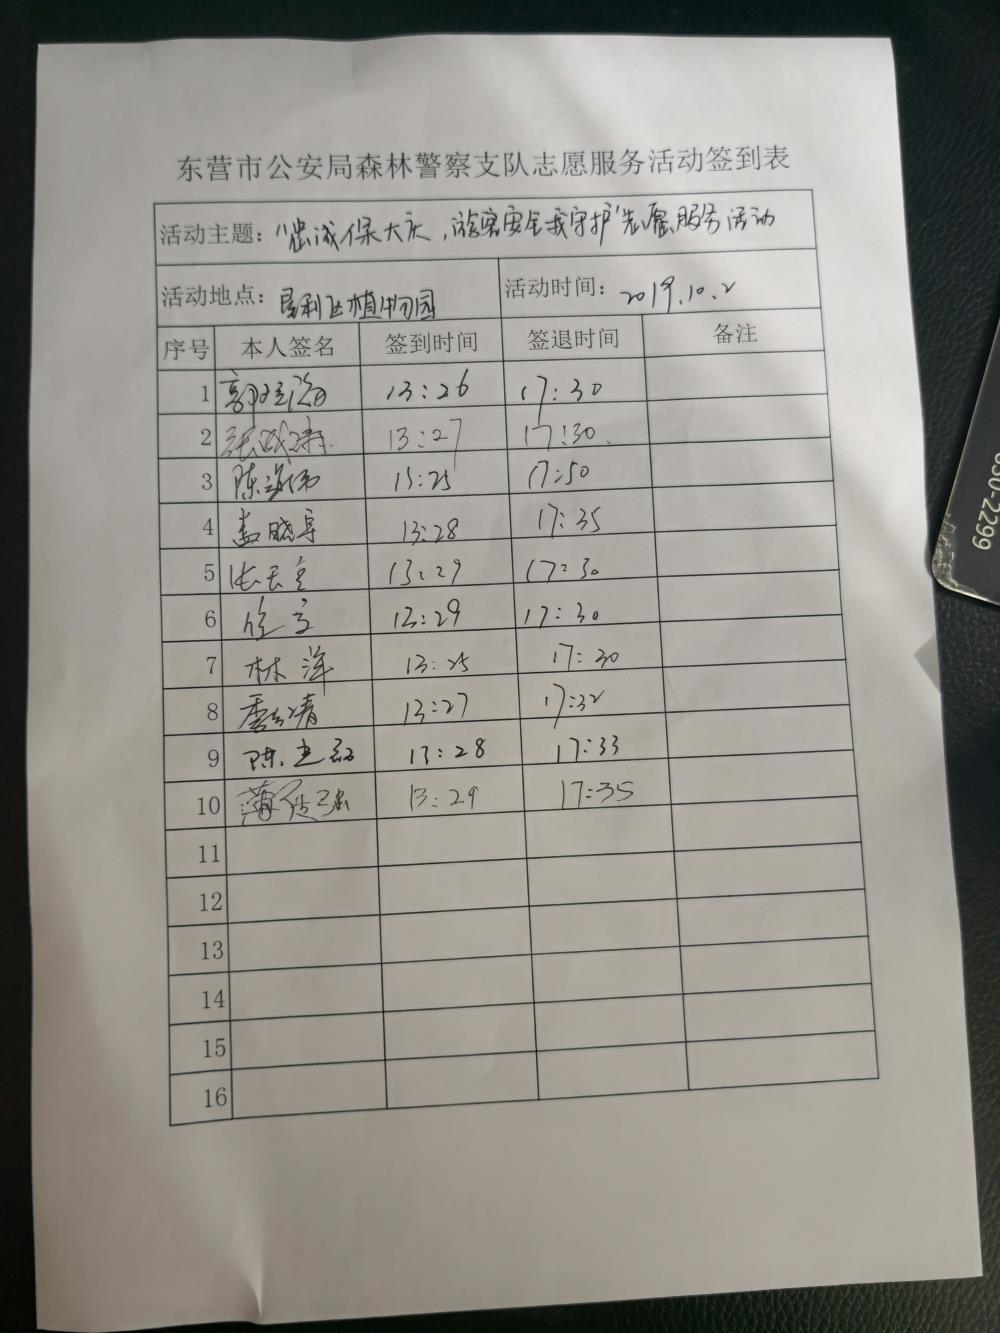 东营市公安局森林警察支队志愿服务活动签到表
活动主题："忠诚保大庆,游客安全我守护"志愿服务活动
活动地点：垦利区植物园 活动时间：2019.10.2
序号 本人签名 签到时间 签退时间 备注
1 13:26 17:30
2 13:27 17:30.
3 陈海伟 13:25 17:50
4 孟晓军 13:28 17:35
5 13:29 17:30
6 13:29 17:30
7 林洋 13:25 17:30
8 13:27 17:32
9 13:28 17:33
10 13:29 17:35
11
12
13
14
15
16
830-2299